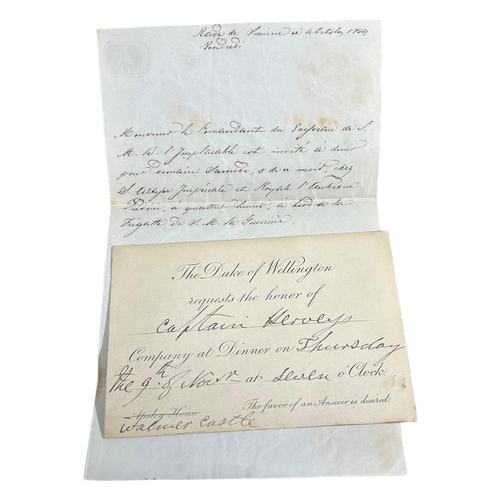 Rade de Smirne ce 4 Octobre
Vendredi
Monsieur le Commandant du Vaisseau de S.
M. B. l'Implacable est invité à diner
pour demain Samedi 5 de ce mois, chez
S. Altesse Impériale et Royale l'Archiduc
à quatre heures, à bord de la
Frégatte de S. M. la Guerriera.
The Duke of Wellington
requests the honor of
Captain Herveys
Company at Dinner on Thursday
the 9th of Novr at seven o'Clock
Apsley House The favor of an Answer is desired.
Walmer Castle